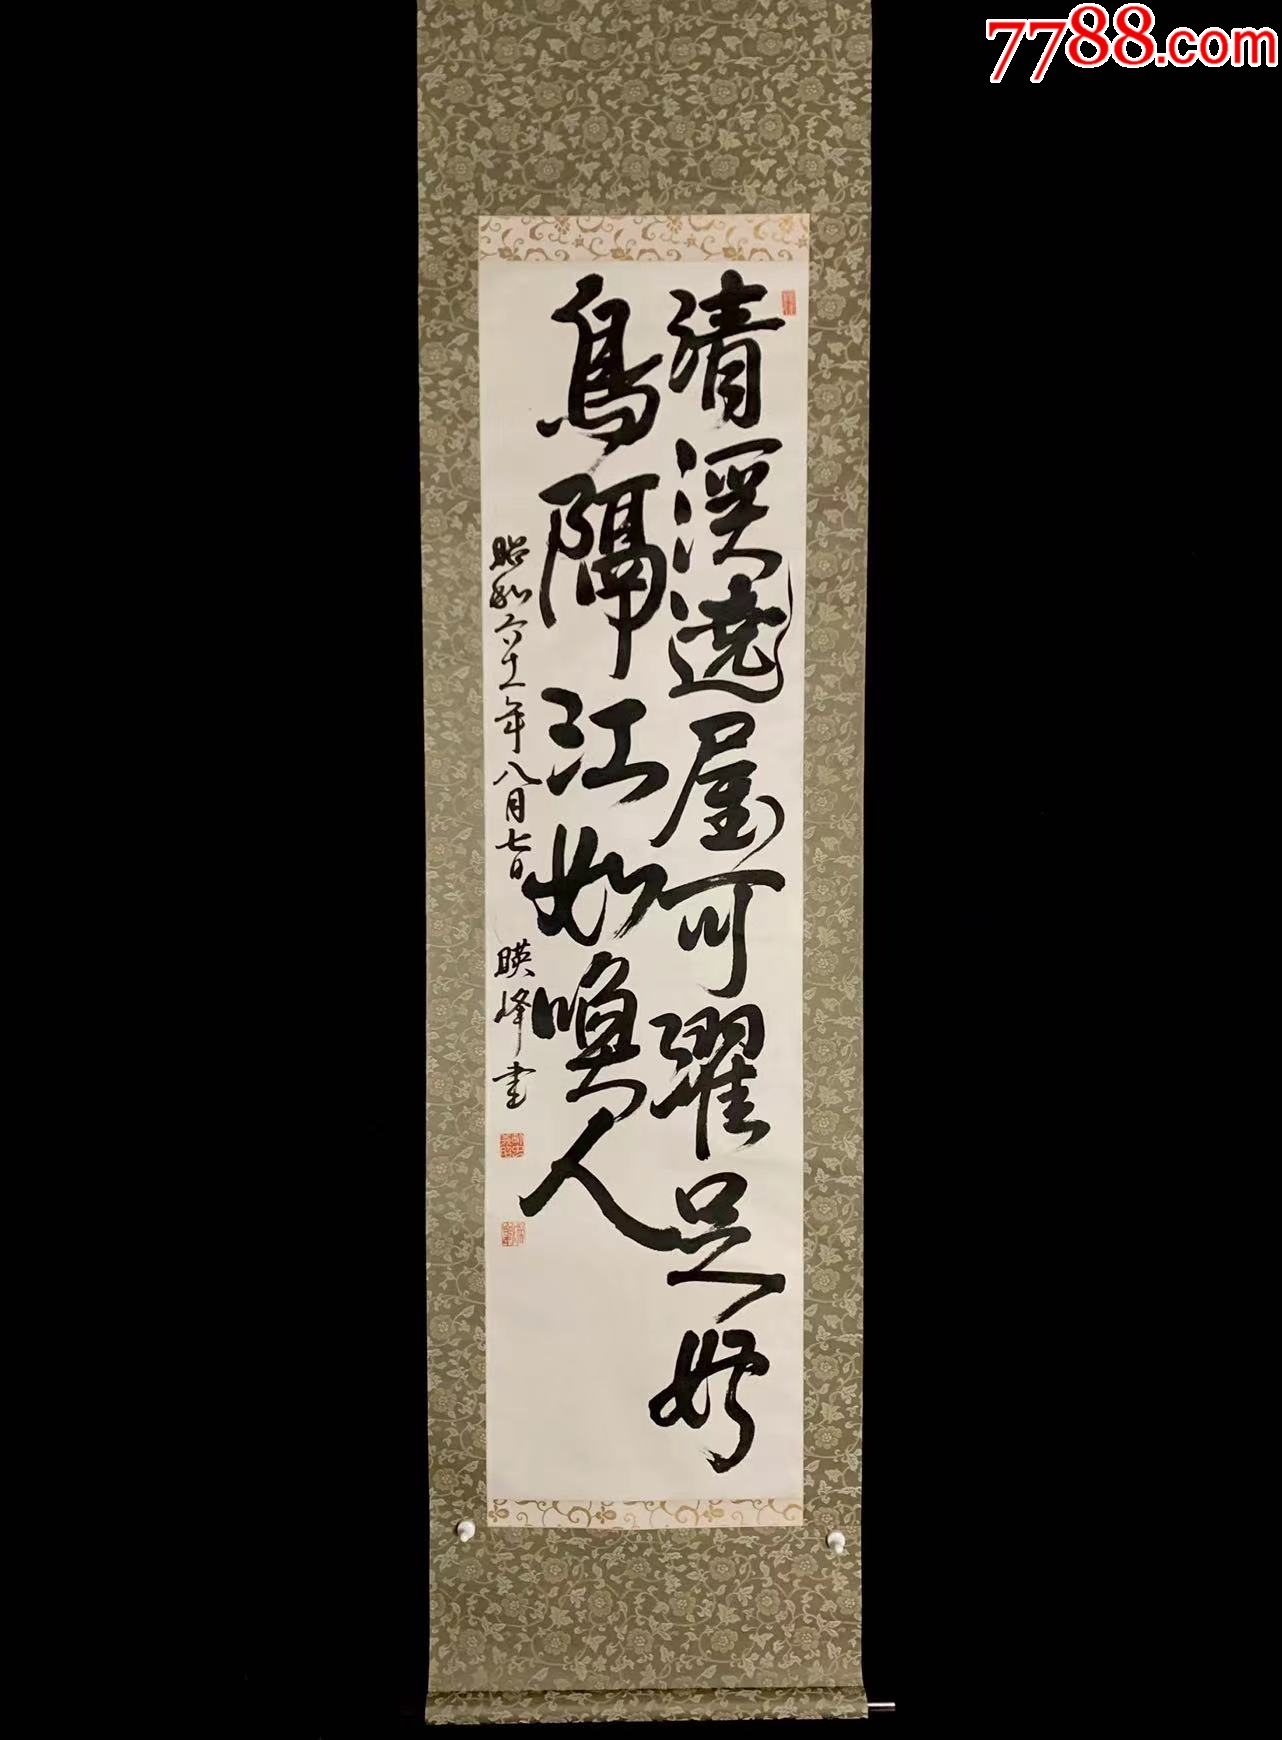 7788.com
清溪遶屋可濯足好
鳥隔江如喚人
昭和六十一年八月七日 暎峰書